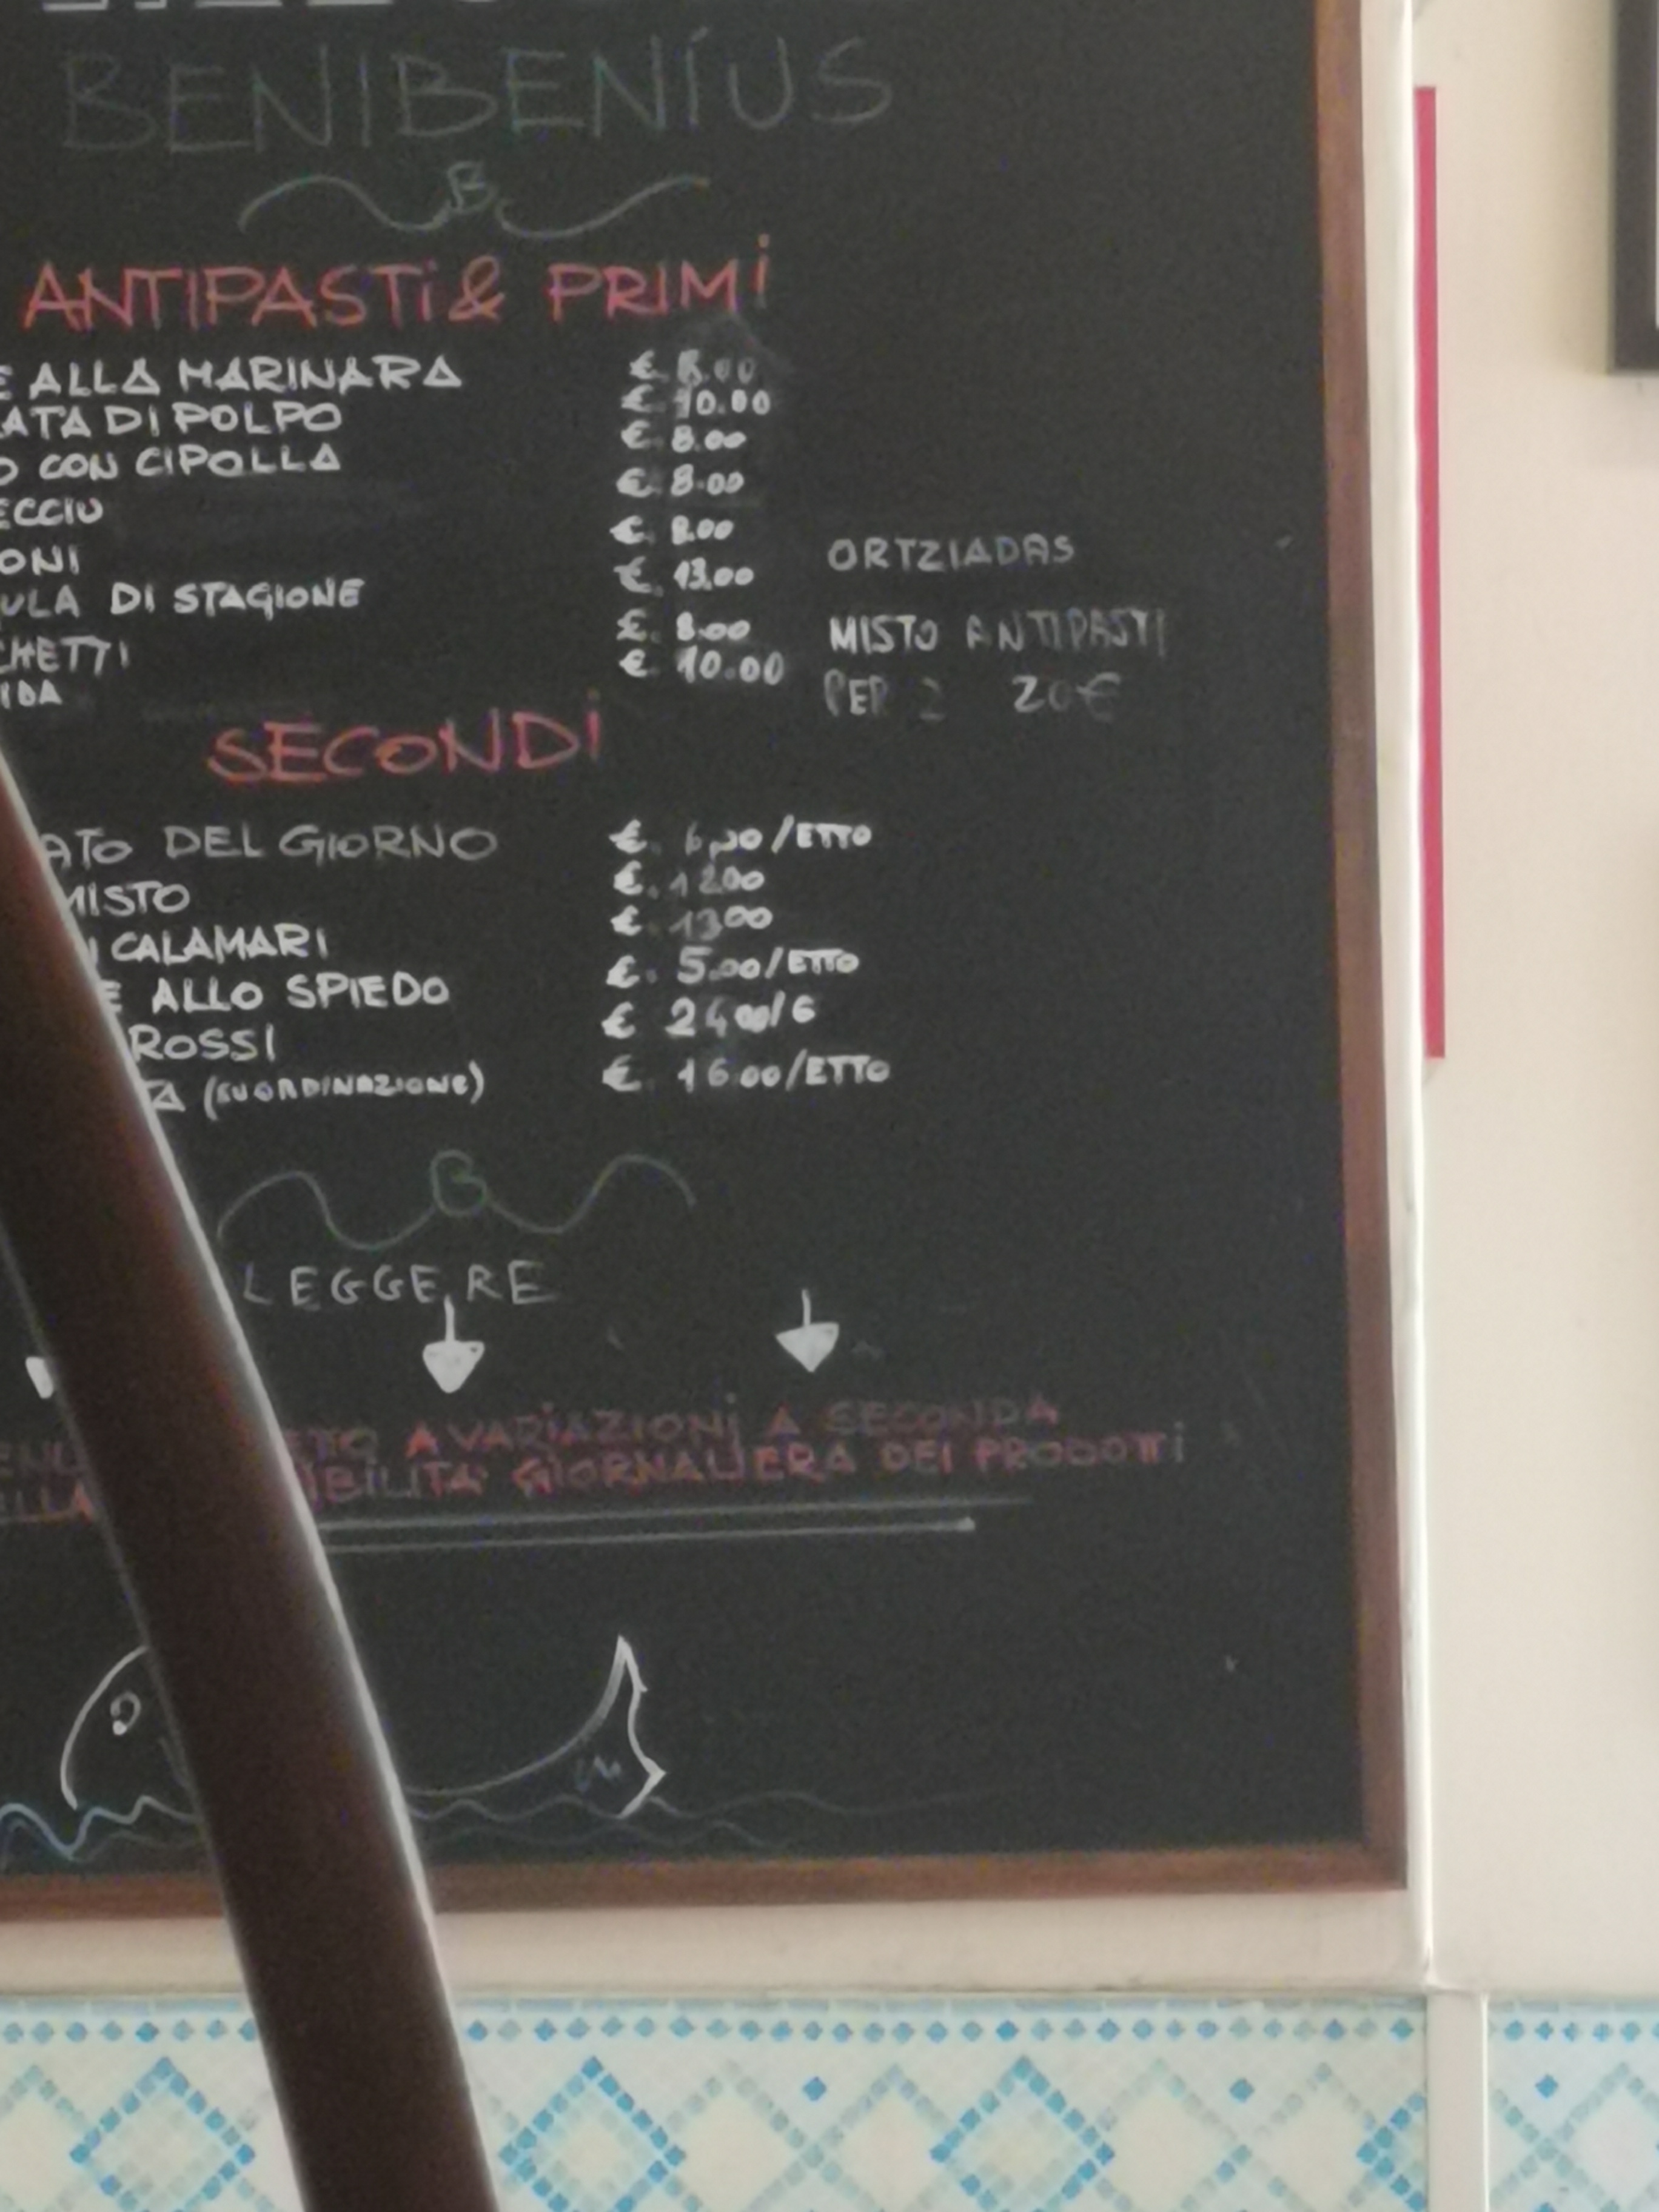 BENIBENIUS
B
ANTIPASTI & PRIMI
E ALLA MARINARA € 8.00
ATA DI POLPO € 10.00
O CON CIPOLLA € 8.00
ECCIU € 8.00
ONI € 8.00
ULA DI STAGIONE €. 13.00
CHETTI €. 8.00
IDA € 10.00
ORTZIADAS
MISTO ANTIPASTI
PER 2 20€
SECONDI
ATO DEL GIORNO €. /ETTO
MISTO €. 12.00
I CALAMARI €. 13.00
E ALLO SPIEDO €. 5.00/ETTO
ROSSI € 24.00/6
TA (SU ORDINAZIONE) €. 16.00/ETTO
B
LEGGERE
ENU ETO A VARIAZIONI A SECONDA
ELLA IBILITA' GIORNALIERA DEI PRODOTTI